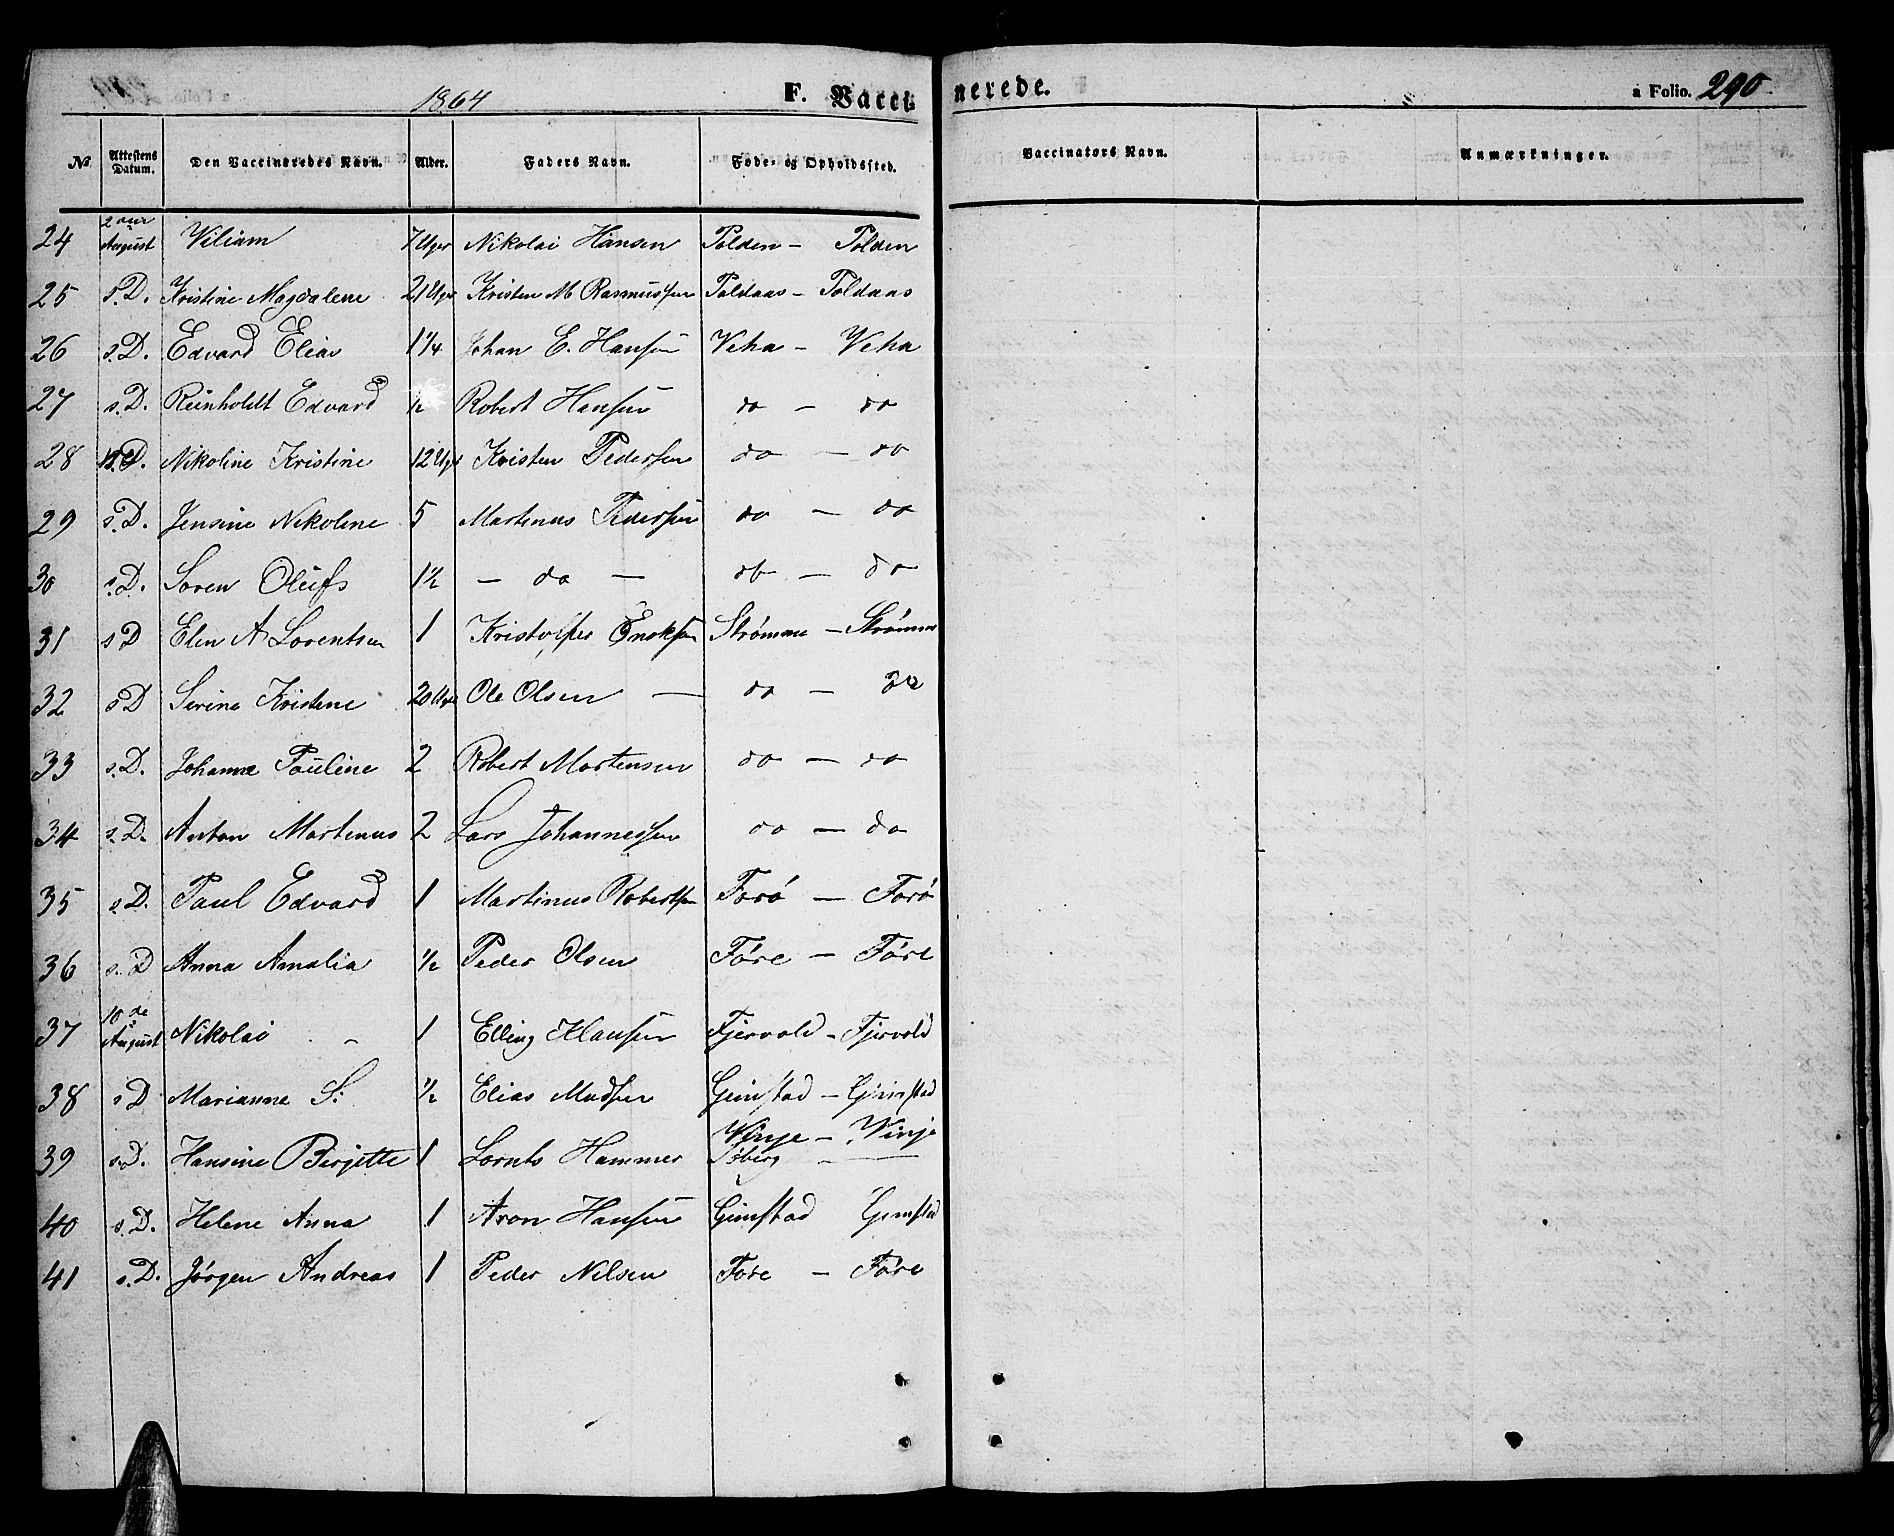 1864 F. Vacci- nerede. a Folio. 290
No. Attestens Datum. Den Vaccineredes Navn. Alder. Faders Navn. Føde- og Opholdssted. Vaccinators Navn. Anmærkninger.
24 August Viliam 7 Uger Nikolai Hansen Polden - Polden
25 s.D. Kristine Magdalene 21 Uger Kristen M Rasmussen Poldaas - Poldaas
26 s.D. Edvard Elias 1 1/4 Johan E. Hansen Veha - Veha
27 s.D. Reinholdt Edvard 1/2 Robert Hansen do - do
28 s.D. Nikoline Kristine 12 Uger Kristen Pedersen do - do
29 s.D. Jensine Nikoline 5 Martinus Pedersen do - do
30 s.D. Søren Oluf 1 1/2 - do - do - do
31 s D Elen A Lorentsen 1 Kristoffer Enoksen Strømme - Strømme
32 s D Serine Kristine 20 Uger Ole Olsen - do - do
33 s.D. Johanna Pauline 2 Robert Mortensen do - do
34 s.D. Anton Martinus 2 Lars Johannessen do - do
35 s.D. Paul Edvard 1 Martinus Robertsen Forø - Forø
36 s. D Anna Amalia 1/2 Peder Olsen Føre - Føre
37 10de August Nikolai - 1 Elling Hansen Fjervold - Fjervold
38 s D Marianna S: 1/2 Elias Madsen Gimstad - Gimstad
39 s.D. Hansine Birgitte 1 Lornts Hammer Vinje - Vinje
40 s.D. Helene Anna 1 Aron Hansen Gimstad Gimstad
41 s.D. Jørgen Andreas 1 Peder Nilsen Føre - Føre